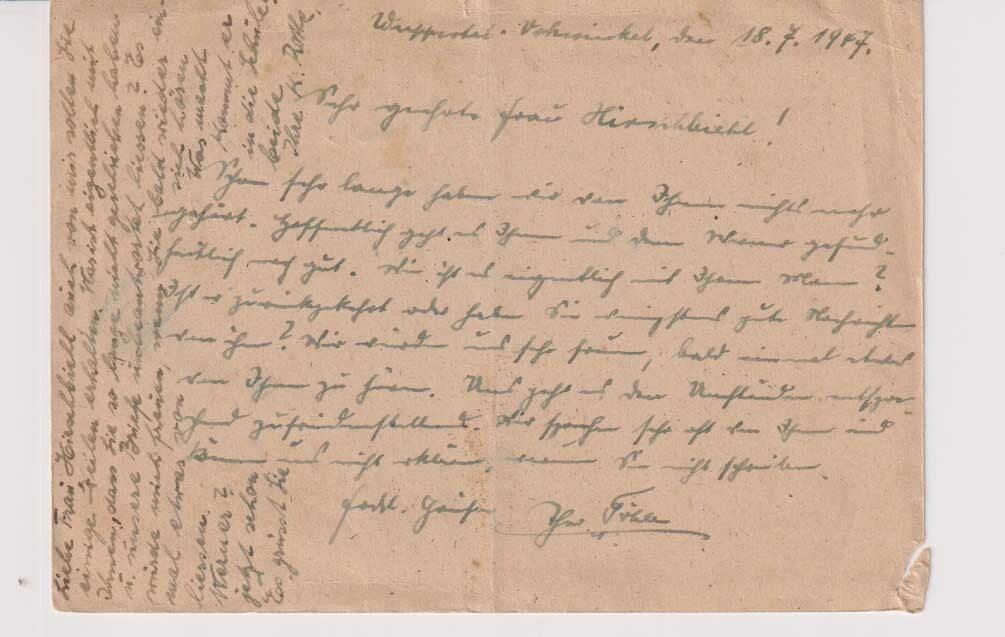 Wuppertal-Vohwinkel, den 18.7.1947.
Sehr geehrte Frau Hirschbiehl!
Schon sehr lange haben wir von Ihnen nichts mehr
gehört. Hoffentlich geht es Ihnen und dem Werner gesund-
heitlich noch gut. Wie ist es eigentlich mit Ihrem Mann?
Ist er zurückgekehrt oder haben Sie wenigstens gute Nachrichten
von ihm? Wir würden uns sehr freuen, bald einmal etwas
von Ihnen zu hören. Uns geht es den Umständen entspre-
chend zufriedenstellend. Wir sprechen sehr oft von Ihnen und
können uns nicht erklären, warum Sie nicht schreiben.
Herzl. Grüße Ihr
Liebe Frau Hirschbiehl auch von mir sollen Sie
einige Zeilen erhalten. Was ist eigentlich mit
Ihnen, dass Sie so lange nicht geschrieben haben
u. unsere Briefe unbeantwortet liessen? Es
würde mich freuen, wenn Sie bald wieder ein-
mal etwas von sich hören
liessen. Was macht
Werner? Kommt er
jetzt schon in die Schule?
Es grüsst Sie beide
Ihre